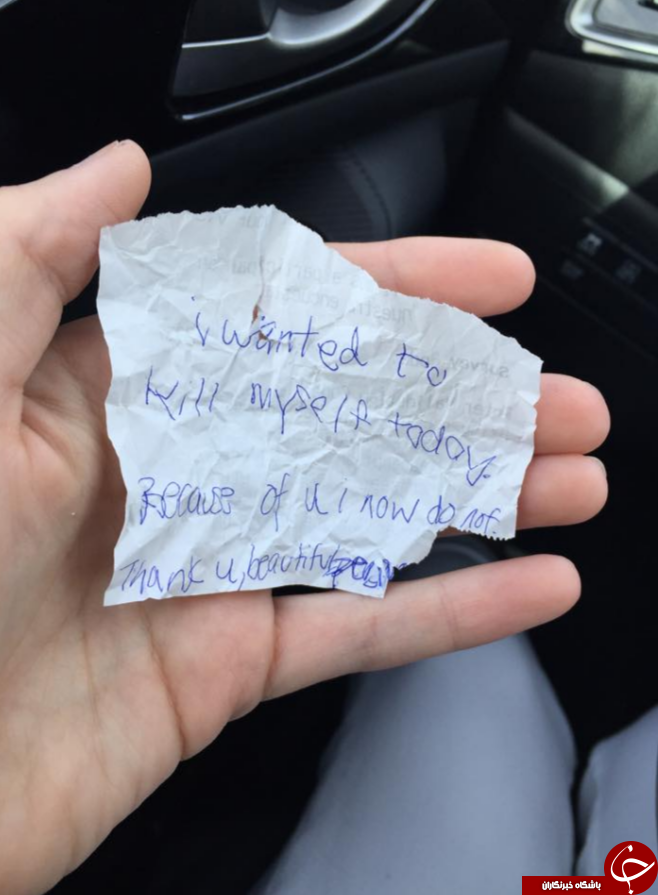 i wanted to
kill myself today.
Because of u i now do not.
Thank u, beautiful
باشگاه خبرنگاران